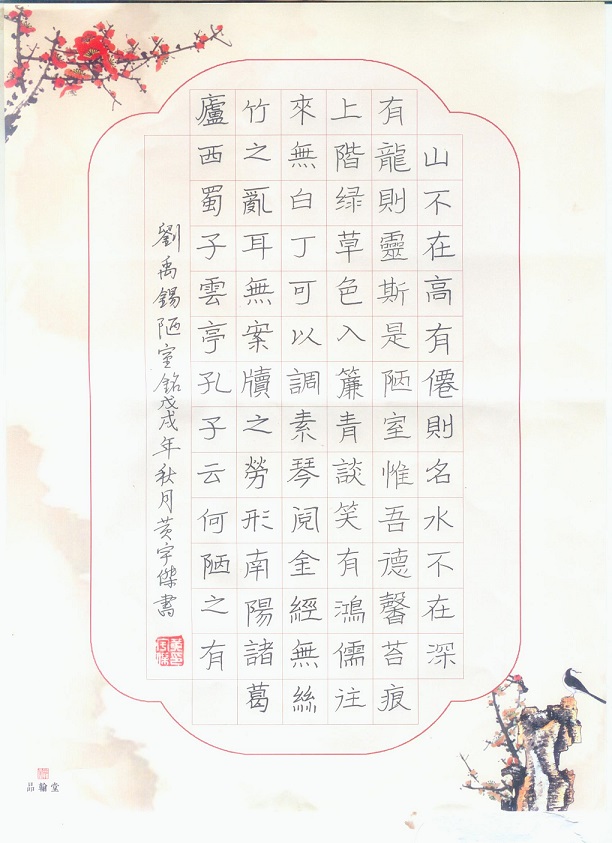 山不在高有僊則名水不在深
有龍則靈斯是陋室惟吾德馨苔痕
上階绿草色入簾青談笑有鴻儒往
來無白丁可以調素琴閱金經無絲
竹之亂耳無案牘之勞形南陽諸葛
廬西蜀子雲亭孔子云何陋之有
劉禹錫陋室銘戊戌年秋月黄宇傑書
品翰堂